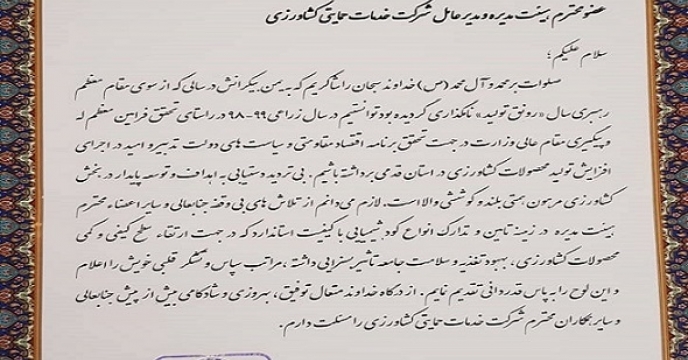 عضو محترم هیئت مدیره و مدیرعامل شرکت خدمات حمایتی کشاورزی
سلام علیکم؛
صلوات بر محمد و آل محمد (ص) خداوند سبحان را شاکریم که به یمن بیکرانش در سالی که از سوی مقام معظم
رهبری سال «رونق تولید» نامگذاری گردیده بود توانستیم در سال زراعی ۹۹-۹۸ در راستای تحقق فرامین معظم له
و پیگیری مقام عالی وزارت در جهت تحقق برنامه اقتصاد مقاومتی و سیاست های دولت تدبیر و امید در اجرای
افزایش تولید محصولات کشاورزی در استان قدمی برداشته باشیم. بی تردید دستیابی به اهداف و توسعه پایدار در بخش
کشاورزی مرهون همتی بلند و کوششی والا است. لازم می دانم از تلاش های بی وقفه جنابعالی و سایر اعضاء محترم
هیئت مدیره در زمینه تامین و تدارک انواع کود شیمیایی با کیفیت استاندارد که در جهت ارتقاء سطح کیفی و کمی
محصولات کشاورزی، بهبود تغذیه و سلامت جامعه تاثیر بسزایی داشته، مراتب سپاس و تشکر قلبی خویش را اعلام
و این لوح را به پاس قدردانی تقدیم نمایم. از درگاه خداوند متعال توفیق، بهروزی و شادکامی بیش از پیش جنابعالی
و سایر همکاران محترم شرکت خدمات حمایتی کشاورزی را مسئلت دارم.